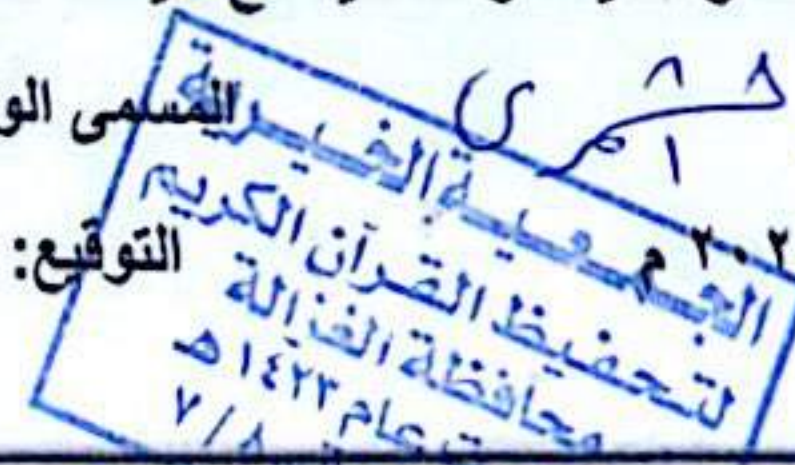 المسمى الو
٢٠٢ م
التوقيع:
الجمعية الخيرية
لتحفيظ القرآن الكريم
بمحافظة الغزالة
عام ١٤٢٣ هـ
٧/٨